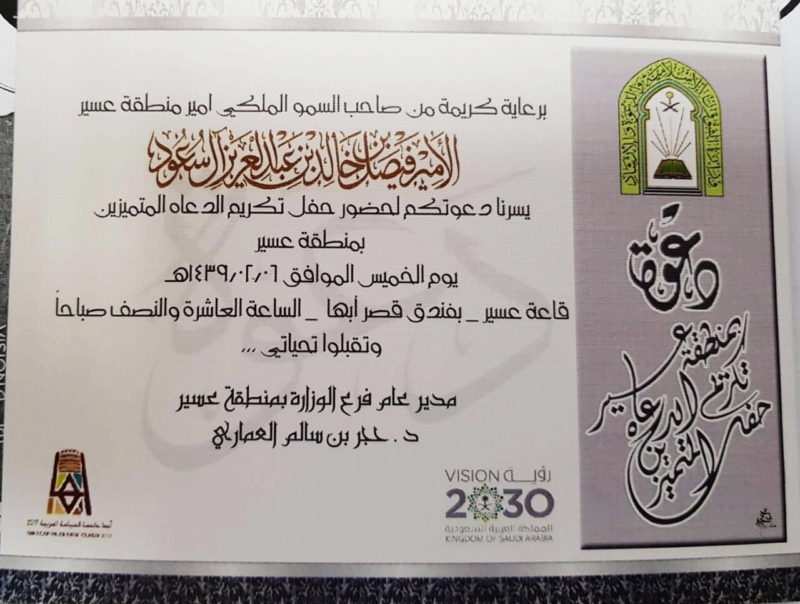 برعاية كريمة من صاحب السمو الملكي امير منطقة عسير
الأمير فيصل بن خالد بن عبدالعزيز آل سعود
يسرنا دعوتكم لحضور حفل تكريم الدعاه المتميزين
بمنطقة عسير
يوم الخميس الموافق ١٤٣٩/٠٢/٠٦هـ
قاعة عسير _ بفندق قصر أبها _ الساعة العاشرة والنصف صباحاً
وتقبلوا تحياتي ,,,
مدير عام فرع الوزارة بمنطقة عسير
د. حجر بن سالم العماري
دعوة
حفل تكريم الدعاة المتميزين
بمنطقة عسير
VISION رؤيــة
2030
المملكة العربية السعودية
KINGDOM OF SAUDI ARABIA
أبها عاصمة السياحة العربية 2017